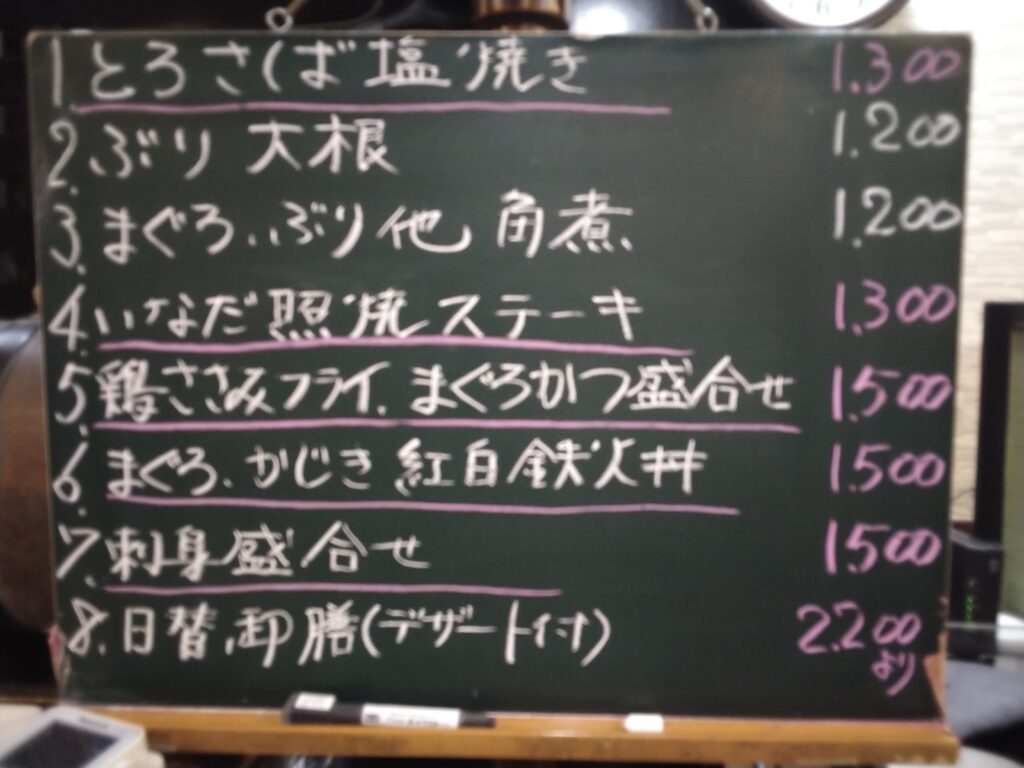 1. とろさば塩焼き 1.300
2. ぶり大根 1.200
3. まぐろ、ぶり他 角煮 1.200
4. いなだ照焼ステーキ 1.300
5. 鶏ささみフライ、まぐろかつ盛合せ 1.500
6. まぐろ、かじき 紅白鉄火丼 1.500
7. 刺身盛合せ 1.500
8. 日替御膳(デザート付) 2.200
より